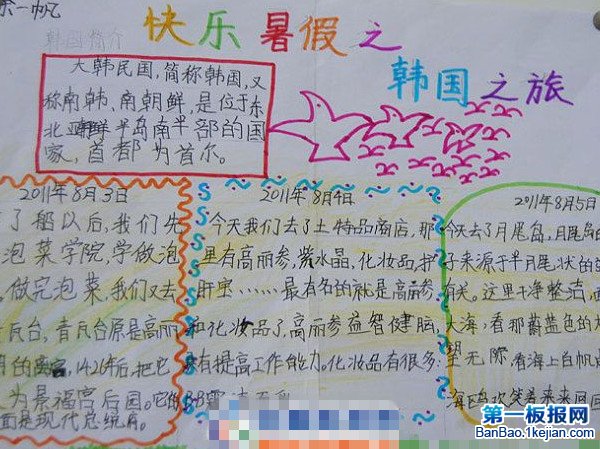 快乐暑假之
韩国之旅
韩国简介
大韩民国，简称韩国，又
称南韩，南朝鲜，是位于东
北亚朝鲜半岛南半部的国
家，首都为首尔。
2011年8月3日
了船以后，我们先
泡菜学院，学做泡
做完泡菜，我们又去
瓦台，青瓦台原是高丽
1426年后把它
为景福高后园。它
面是现代总统府。
2011年8月4日
今天我们去了土特品商店，那
里有高丽参，紫水晶，化妆品，护
肝宝……最有名的就是高丽参
和化妆品了，高丽参益智健脑，
有提高工作能力。化妆品有很多：
2011年8月5日
今天去了月尾岛，月尾岛的
好来源于半月尾状的
有关。这里干净整洁，面
大海，看那蔚蓝色的大
望无际，看海上白帆点
海鸥欢笑着来来回回
第一板报网
BanBao.1kejian.com